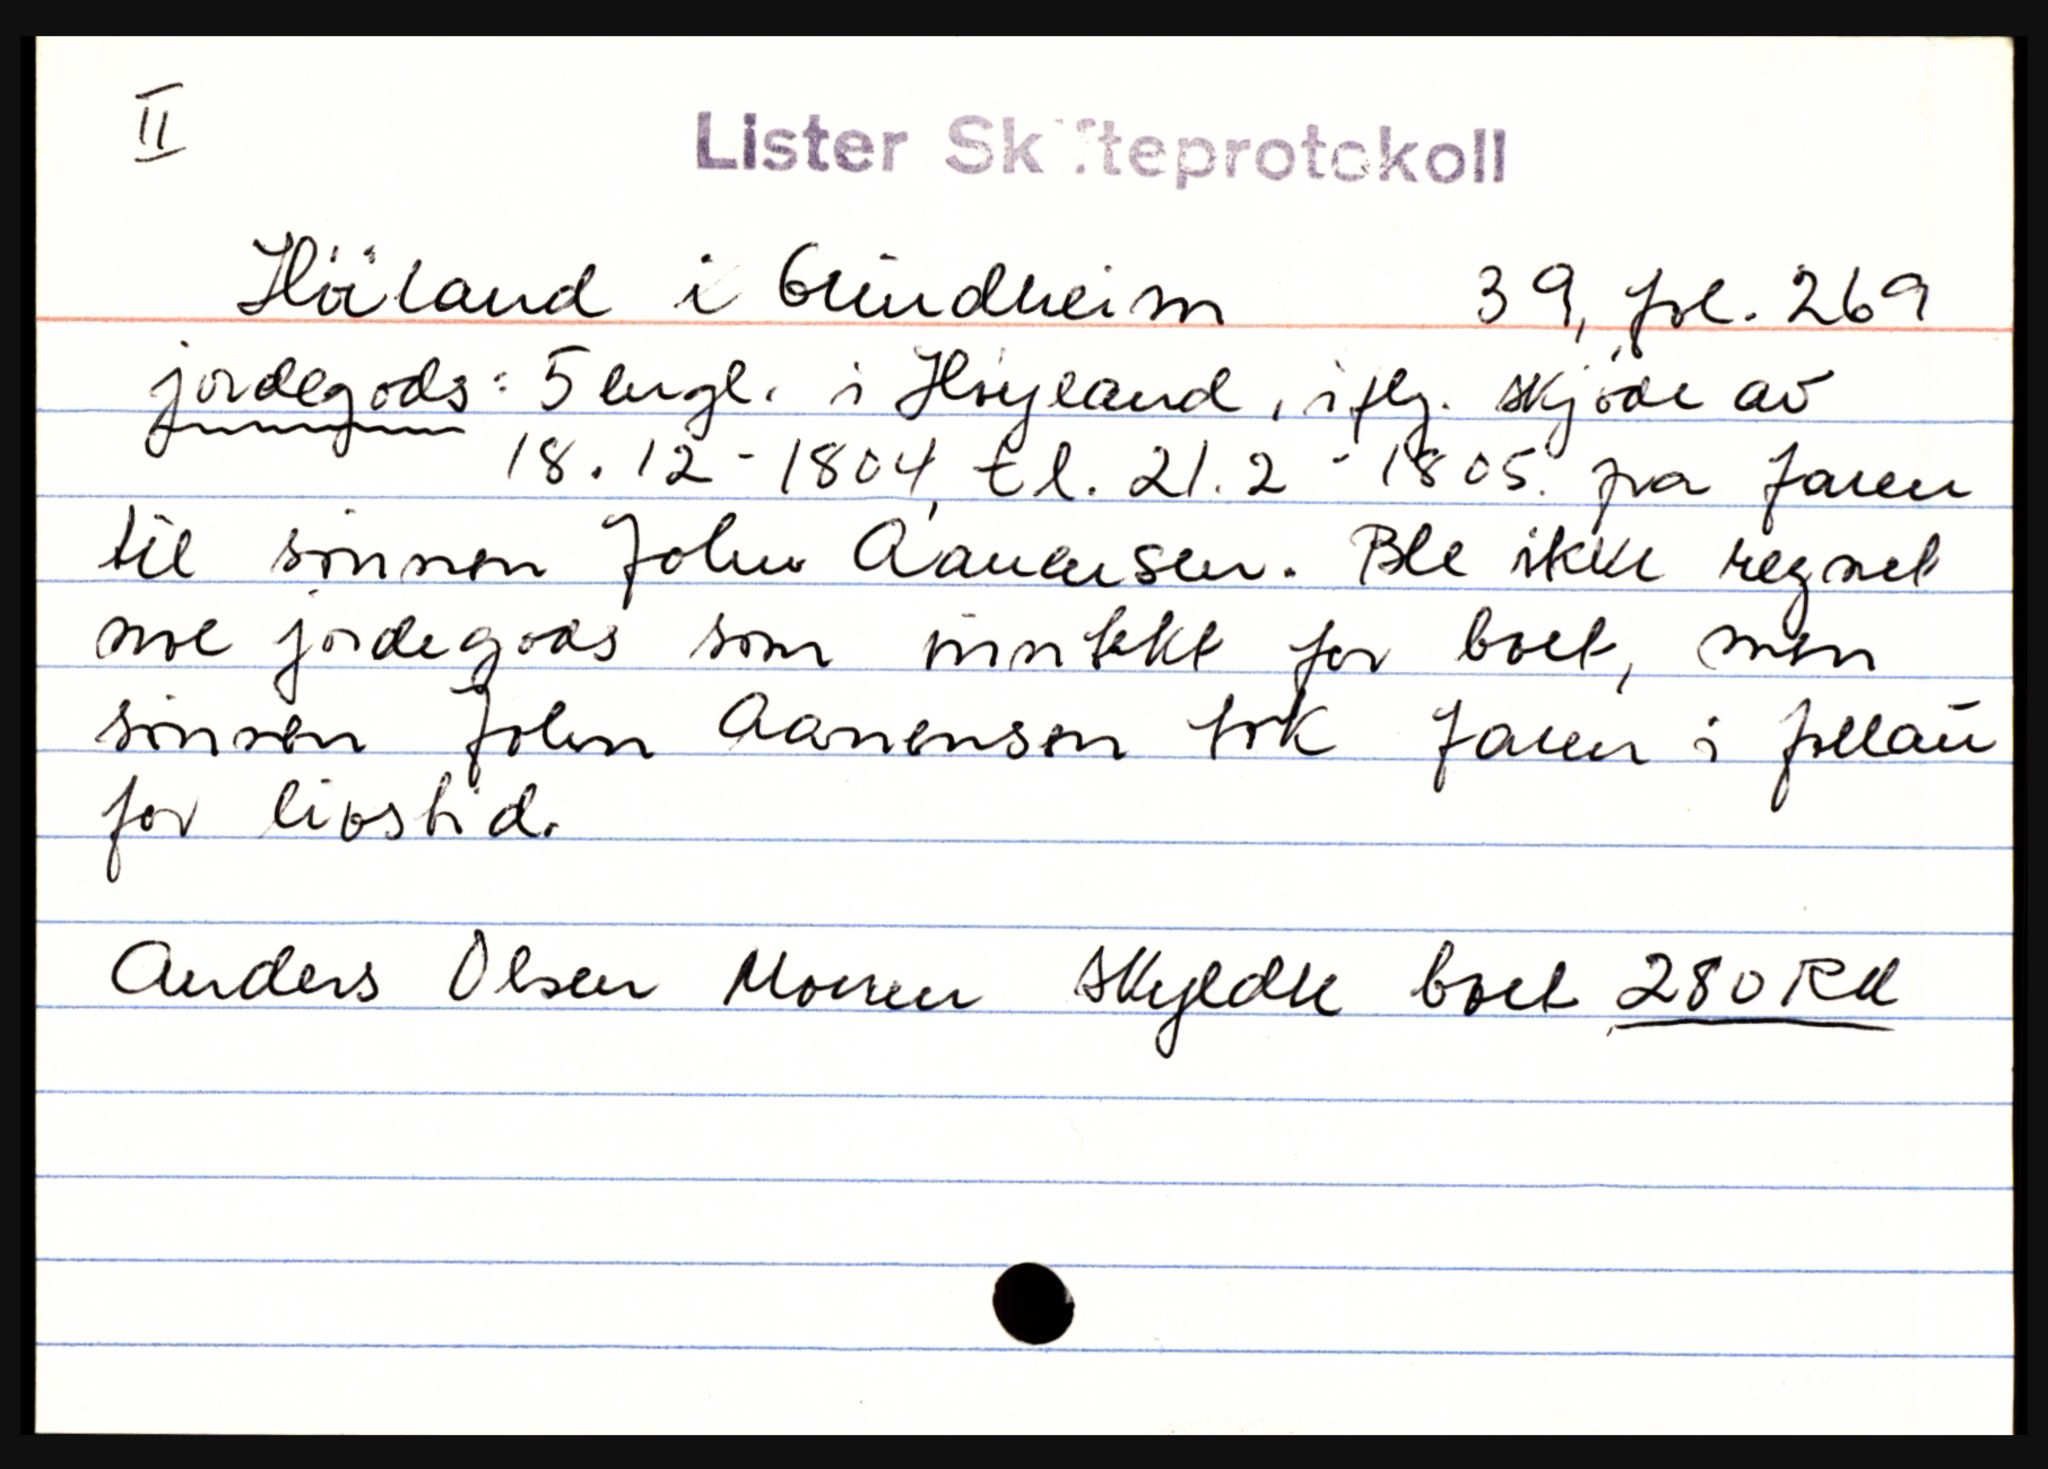 II
Lister Skifteprotokoll
Høiland i Grindheim 39, fol. 269
jordegods: 5 engl. i Høyland, iflg. skjøde av
18.12-1804, tl. 21.2-1805. fra faren
til sønnen John Aanensen. Ble ikke regnet
noe jordegods som inntekt for boet, men
sønnen John Aanensen tok faren i follau
for livstid.
Anders Olsen Moeren skyldte boet 280 Rd